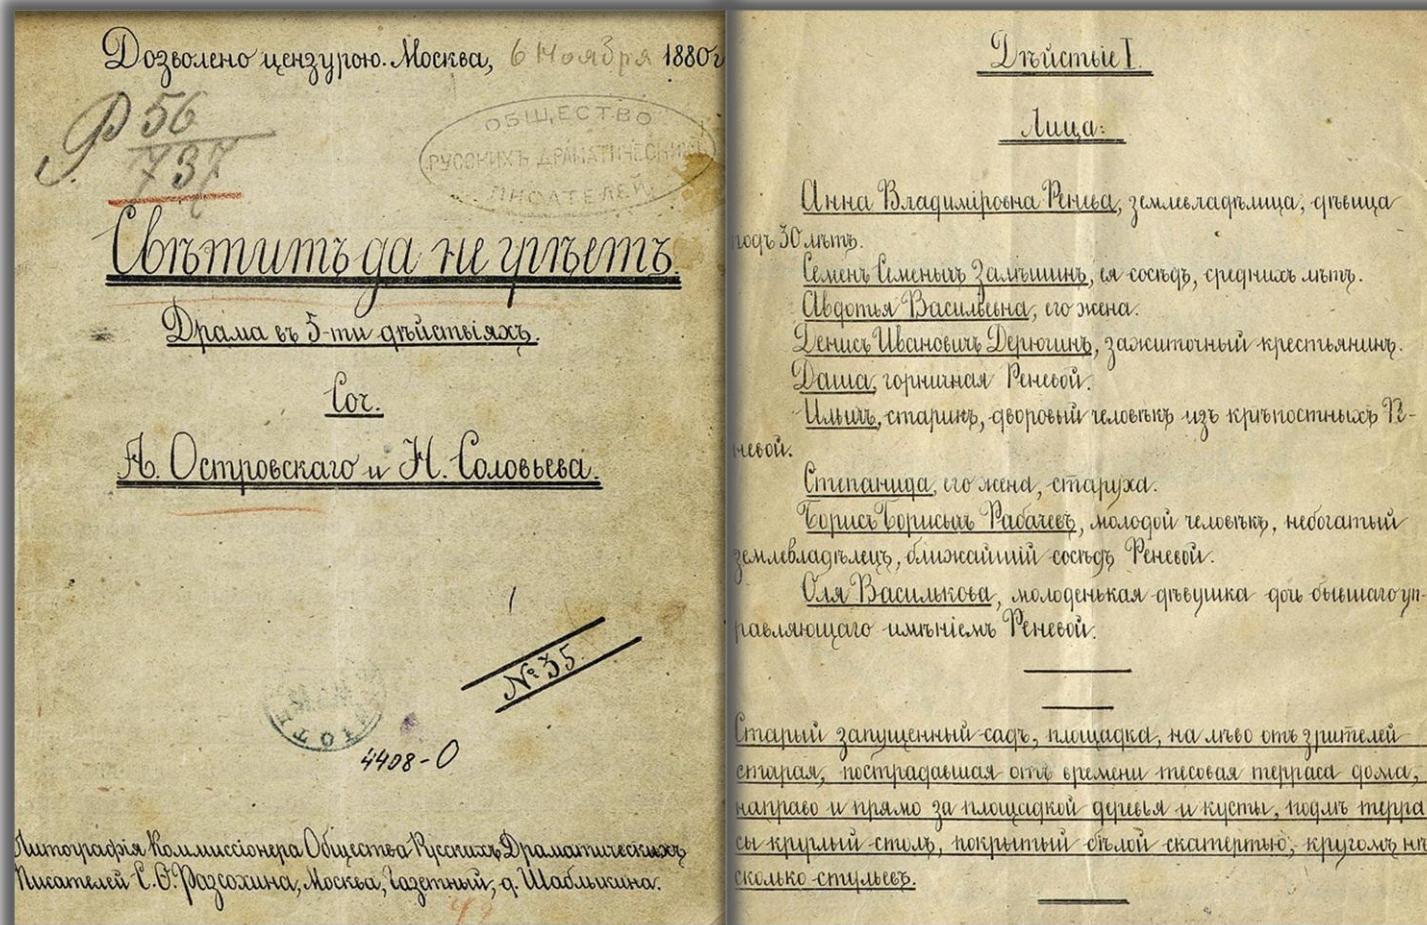 Дозволено цензурою. Москва, 6 Ноября 1880 г
Р 56
737
ОБЩЕСТВО
РУССКИХЪ ДРАМАТИЧЕСКИХЪ
ПИСАТЕЛЕЙ
Свѣтитъ да не грѣетъ.
Драма въ 5-ти дѣйствіяхъ.
Соч.
А. Островскаго и Н. Соловьева.
№ 35.
4408-0
Литографія Коммиссіонера Общества Русскихъ Драматическихъ
Писателей С. Ѳ. Разсохина, Москва, Газетный, д. Шаблыкина.
Дѣйствіе I.
Лица:
Анна Владиміровна Ренева, землевладѣлица, дѣвица
подъ 30 лѣтъ.
Семенъ Семенычъ Залѣшинъ, ея сосѣдъ, среднихъ лѣтъ.
Авдотья Васильевна, его жена.
Денисъ Ивановичъ Дерюгинъ, зажиточный крестьянинъ.
Даша, горничная Реневой.
Ильичъ, старикъ, дворовый человѣкъ изъ крѣпостныхъ Р-
невой.
Степанида, его жена, старуха.
Борисъ Борисычъ Рабачевъ, молодой человѣкъ, небогатый
землевладѣлецъ, ближайшій сосѣдъ Реневой.
Оля Василькова, молоденькая дѣвушка дочь бывшаго уп-
равляющаго имѣніемъ Реневой.
Старый запущенный садъ, площадка, на лѣво отъ зрителей
старая, пострадавшая отъ времени тесовая терраса дома,
направо и прямо за площадкой деревья и кусты, подлѣ терра
сы круглый столъ, покрытый бѣлой скатертью, кругомъ нѣ
сколько стульевъ.